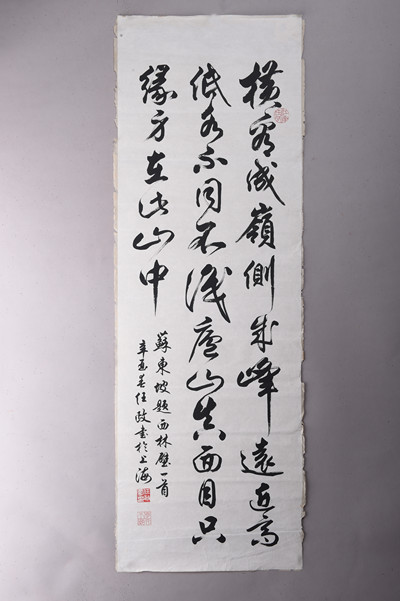 橫看成嶺側成峰遠近高
低各不同不識廬山真面目只
緣身在此山中
蘇東坡題西林壁一首
辛酉春任政書於上海